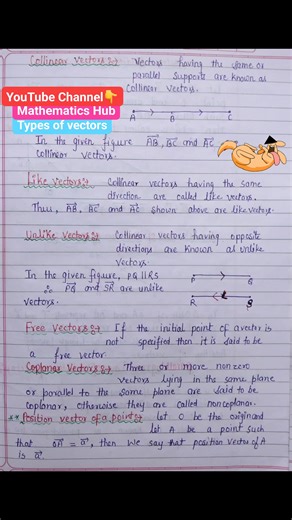 Collinear Vectors:→ Vectors having the same or
parallel supports are known as
Collinear Vectors.
YouTube Channel👇
Mathematics Hub
Types of vectors
A B C
In the given figure AB, BC and AC
collinear vectors.
Like Vectors:→ Collinear vectors having the same
direction are called like vectors.
Thus, AB, BC and AC shown above are like vectors.
Unlike Vectors:→ Collinear vectors having opposite
directions are known as unlike
Vectors.
In the given figure, PQ || RS
P Q
∴ PQ and SR are unlike
R S
vectors.
Free Vectors:→ If the initial point of a vector is
not specified then it is said to be
a free vector.
Coplanar Vectors:→ Three or more non zero
vectors lying in the same plane
or parallel to the same plane are said to be
Coplanar, otherwise they are called noncoplanar.
**Position vector of a point:→ let O be the origin and
let A be a point such
that OA = a, then we say that position vector of A
is a.